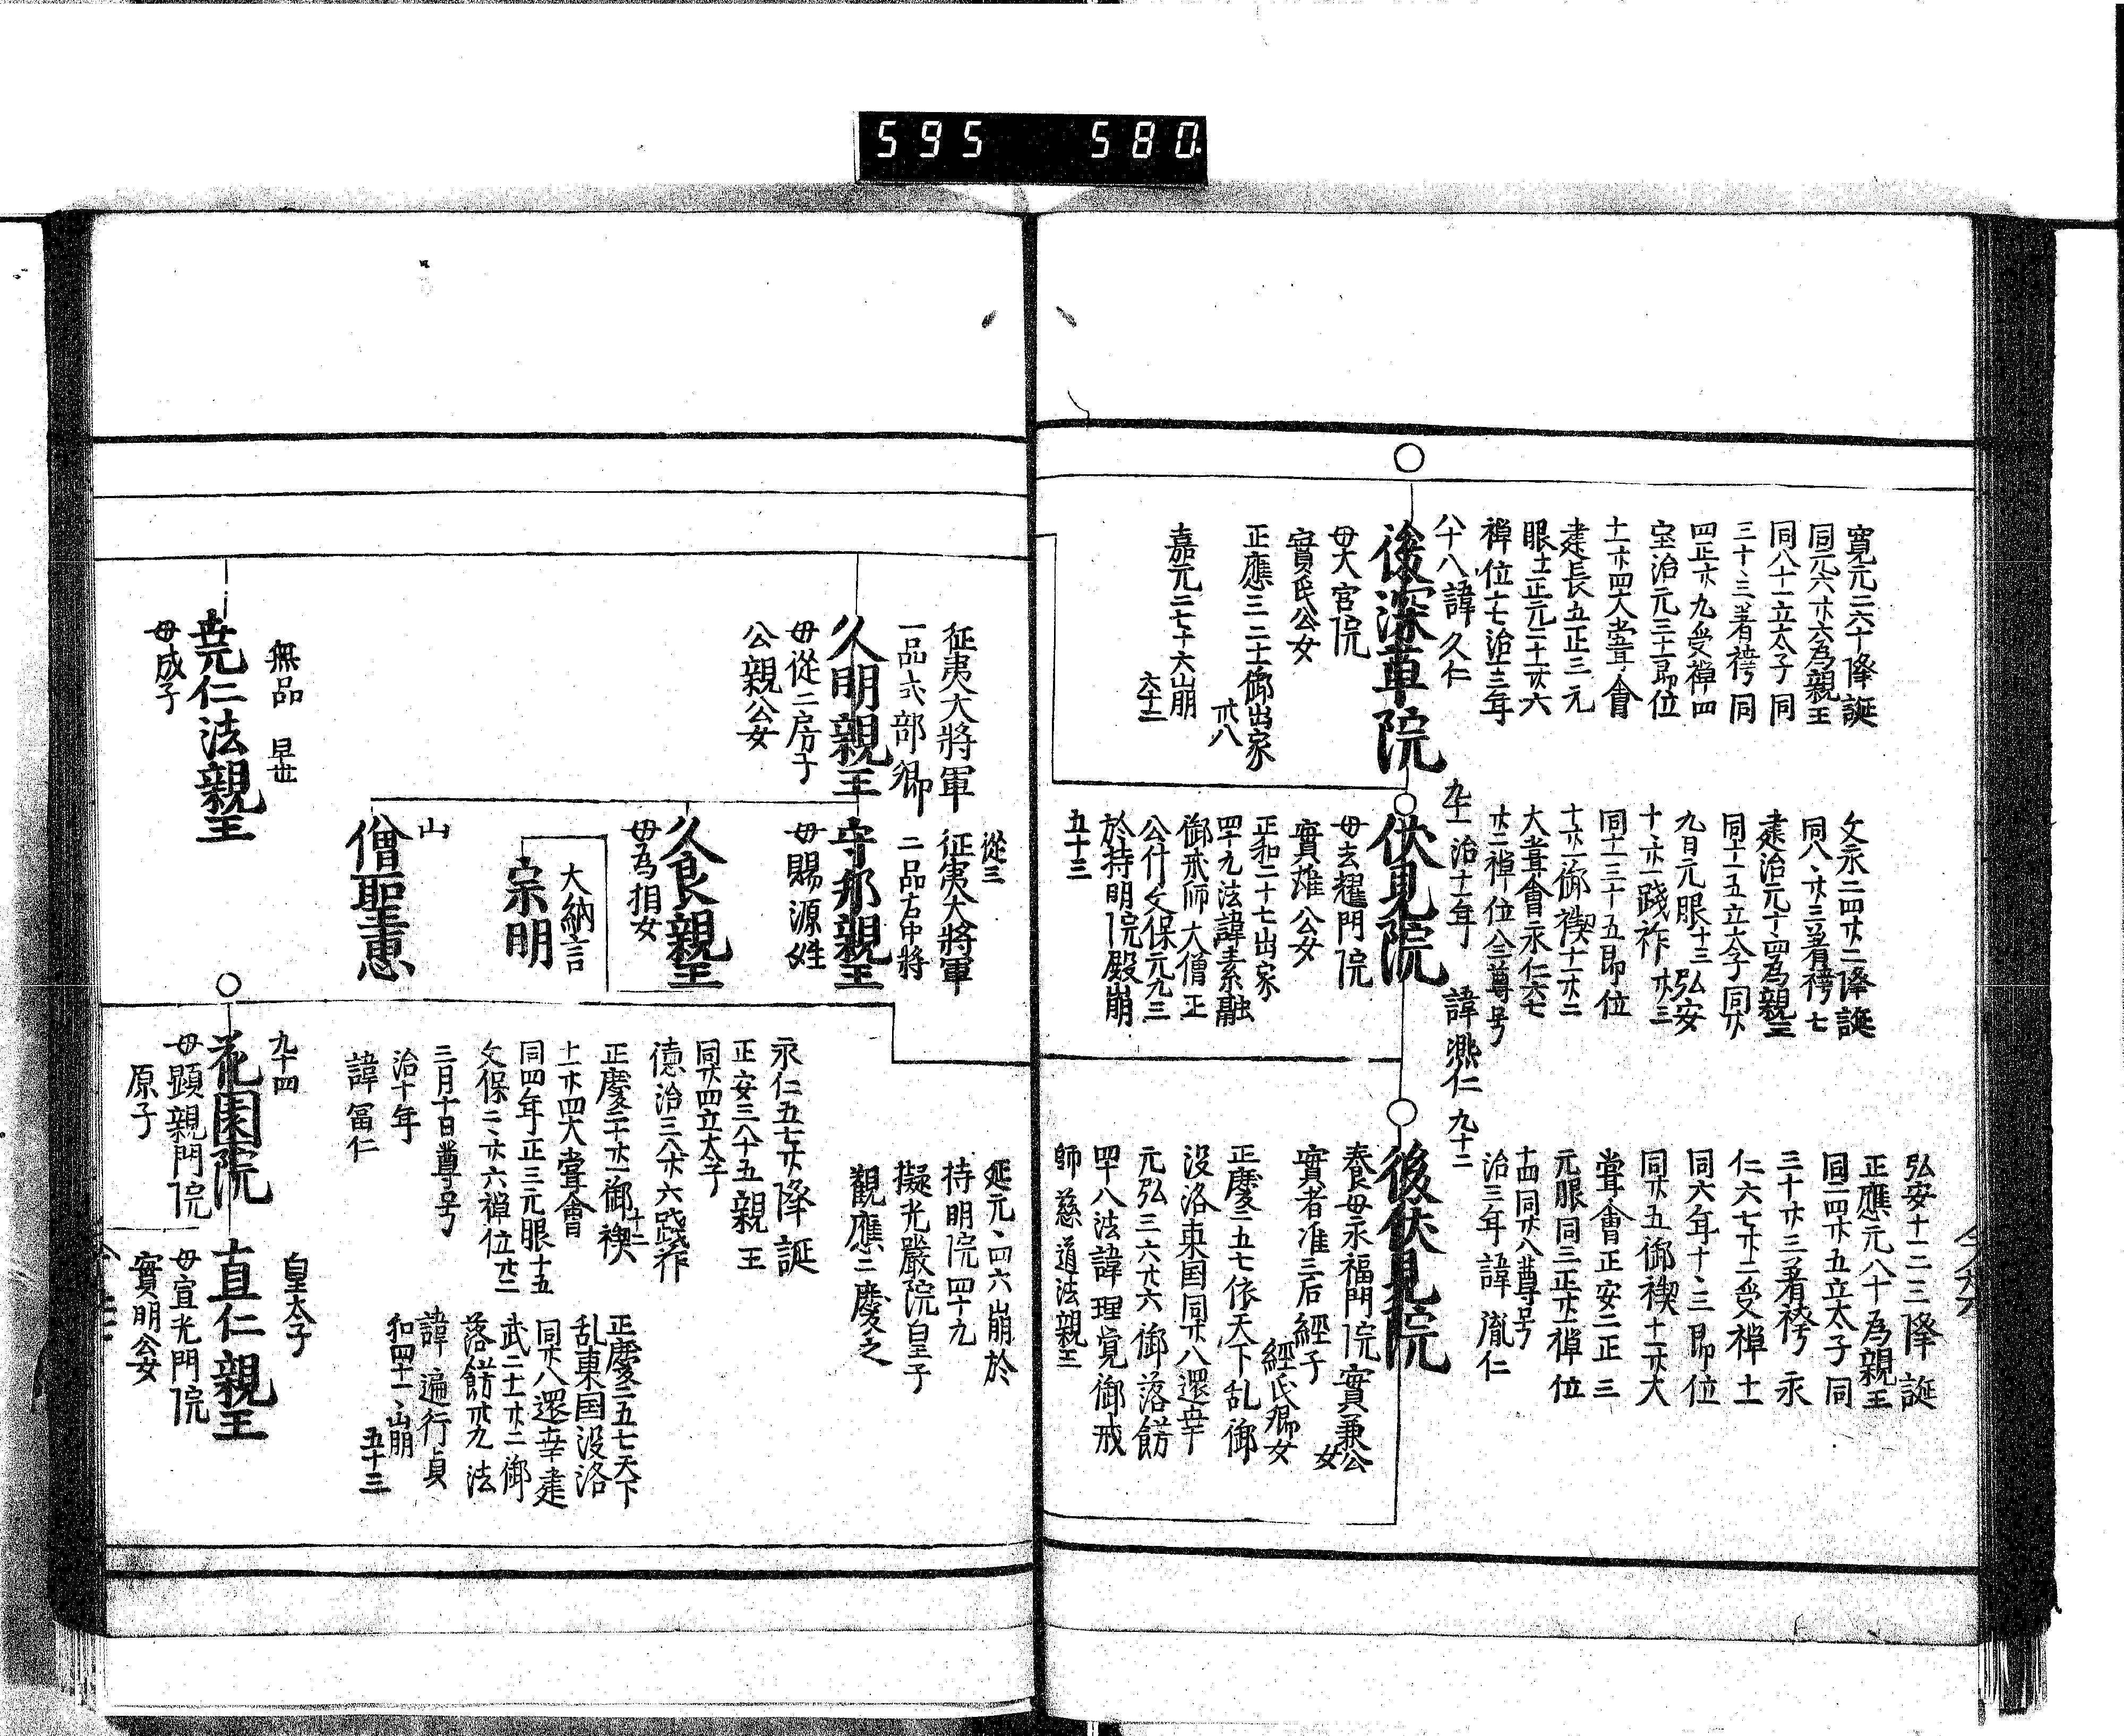 595 580
寛元二六十降誕
同元六廾六為親王
同八十一立太子同
三十、三着袴同
四正廾九受禅四
宝治元三十一即位
十一廾四大嘗會
建長五正三元
服士正元二十一廾六
禅位七治十三年
八十八諱久仁
後深草院
母大宮院
實氏公女
正應三二十一御出家
卌八
嘉元二七十六崩
六十二
文永二四廾二降誕
同八、廾三着袴七
建治元十一四為親王
同十一五立太子同廾
九日元服十三弘安
十、廾一践祚廾三
同十一三十五即位
十廾一御禊十一廾二
大嘗會永仁六七
廾二禅位八三尊号
九十一治十一年諱熈仁
伏見院
母玄耀門院
實雄公女
正和二十七出家
四十九法諱素融
御戒師大僧正
公什文保元九三
於持明院殿崩
五十三
弘安十一三三降誕
正應元八十為親王
同二四廾五立太子同
三十廾三着袴永
仁六七廾二受禅十一
同六年十、三即位
同廾五御禊十一廾大
嘗會正安二正三
元服同三正廾一禅位
十四同廾八尊号
九十二
治三年諱胤仁
後伏見院
養母永福門院實兼公女
實者准三后經子
經氏卿女
正慶二五七依天下乱御
没落東国同廾八還幸
元弘三六廾六御落餝
四十八法諱理覚御戒
師慈道法親王
延元、四六崩於
持明院四十九
擬光嚴院皇子
觀應二慶之
征夷大將軍
一品式部卿
久明親王
母從二房子
公親公女
從三
征夷大將軍
二品右中將
守邦親王
母賜源姓
久良親王
母為相女
大納言
宗明
山
僧聖恵
無品 早世
尭仁法親王
母成子
永仁五七廾降誕
正安三八十五親王
同廾四立太子
徳治三八廾六践祚
正慶二十廾一御禊
十二
十一廾四大嘗會
同四年正三元服十五
文保二、廾六禅位廾二
三月十日尊号
治十年
諱冨仁
正慶二五七天下
乱東国没洛
同廾八還幸建
武二十一廾二御
落餝卅九法
諱遍行貞
和四十一、崩
五十三
九十四
花園院
母顕親門院
原子
皇太子
直仁親王
母宣光門院
實明公女